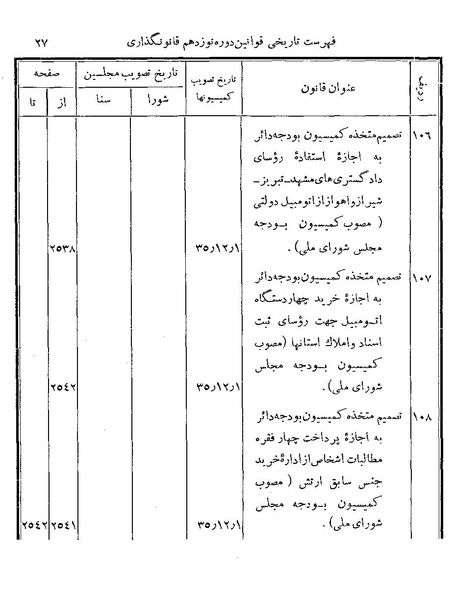 فهرست تاریخی قوانین دوره نوزدهم قانونگذاری ۲۷
ردیف عنوان قانون تاریخ تصویب کمیسیونها تاریخ تصویب مجلسین صفحه
شورا سنا از تا
۱۰۶ تصمیم متخذه کمیسیون بودجه دائر
به اجازهٔ استفادهٔ رؤسای
دادگستری‌های مشهد_تبریز_
شیراز و اهواز از اتومبیل دولتی
( مصوب کمیسیون بودجه
مجلس شورای ملی ) . ۳۵٫۱۲٫۱ ۲۵۳۸
۱۰۷ تصمیم متخذه کمیسیون بودجه دائر
به اجازهٔ خرید چهار دستگاه
اتومبیل جهت رؤسای ثبت
اسناد و املاك استانها (مصوب
کمیسیون بودجه مجلس
شورای ملی ) . ۳۵٫۱۲٫۱ ۲۵۴۲
۱۰۸ تصمیم متخذه کمیسیون بودجه دائر
به اجازهٔ پرداخت چهار فقره
مطالبات اشخاص از ادارهٔ خرید
جنس سابق ارتش ( مصوب
کمیسیون بودجه مجلس
شورای ملی ) . ۳۵٫۱۲٫۱ ۲۵۴۱ ۲۵۴۲